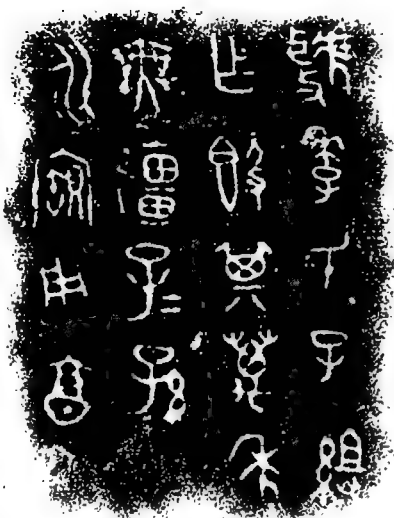 虢季氏子組
乍簋其萬年
無疆子=孫=
永寶用享